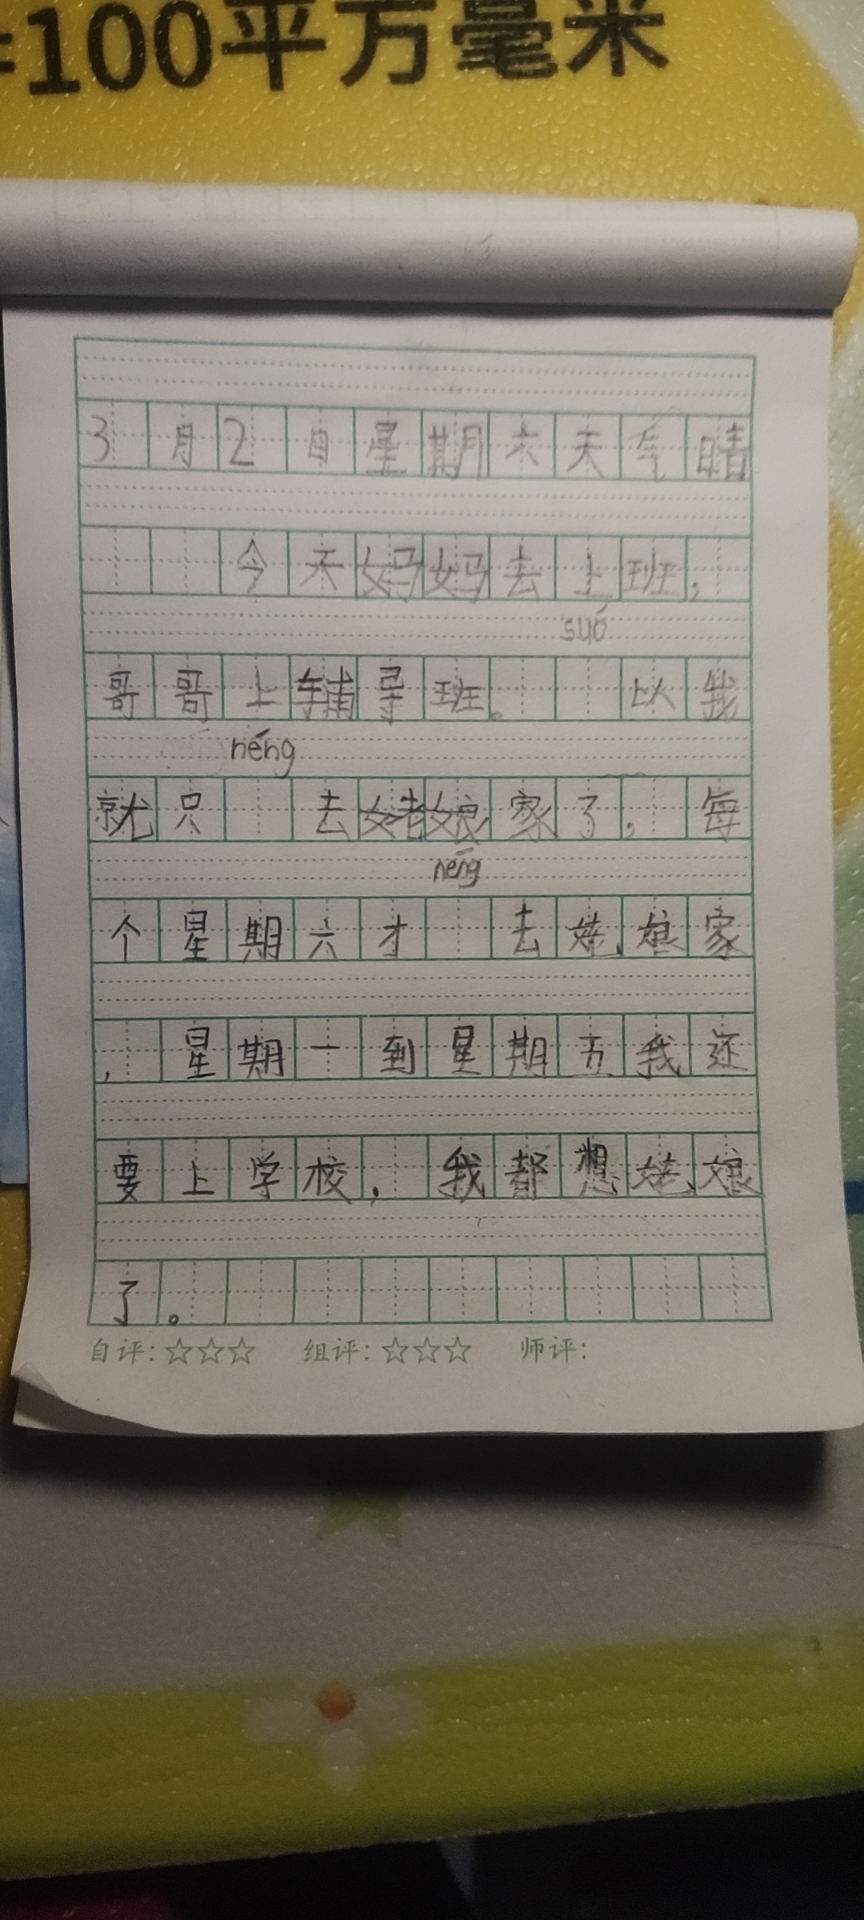 =100平方毫米
3月2日星期六天气晴
今天妈妈去上班，
suó
哥哥上辅导班。 以我
néng
就只 去姥娘家了，每
néng
个星期六才 去姥娘家
，星期一到星期五我还
要上学校，我都想姥娘
了。
自评：☆☆☆ 组评：☆☆☆ 师评：